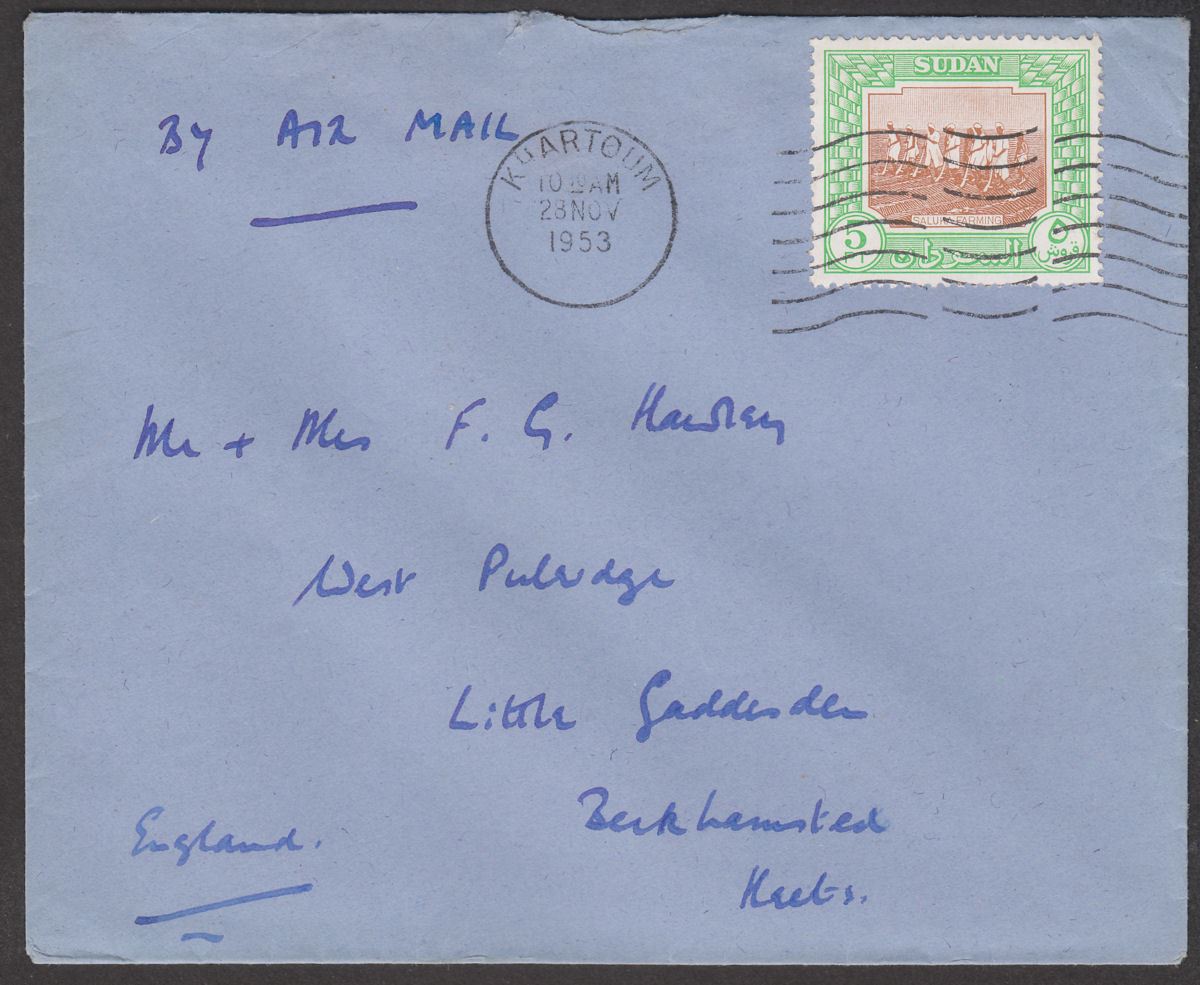 BY AIR MAIL
KHARTOUM
10 AM
28 NOV
1953
SUDAN
SALUKA FARMING
5 PT
السودان
٥ قروش
Mr + Mrs F. G. Hawley
West Pulridge
Little Gaddesden
Berkhamsted
Herts.
England.